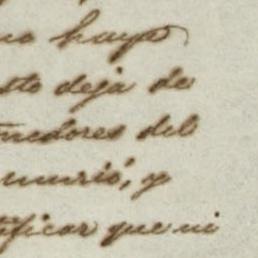 no haya
sto deja de
nedores del
murió, y
tificar que ni